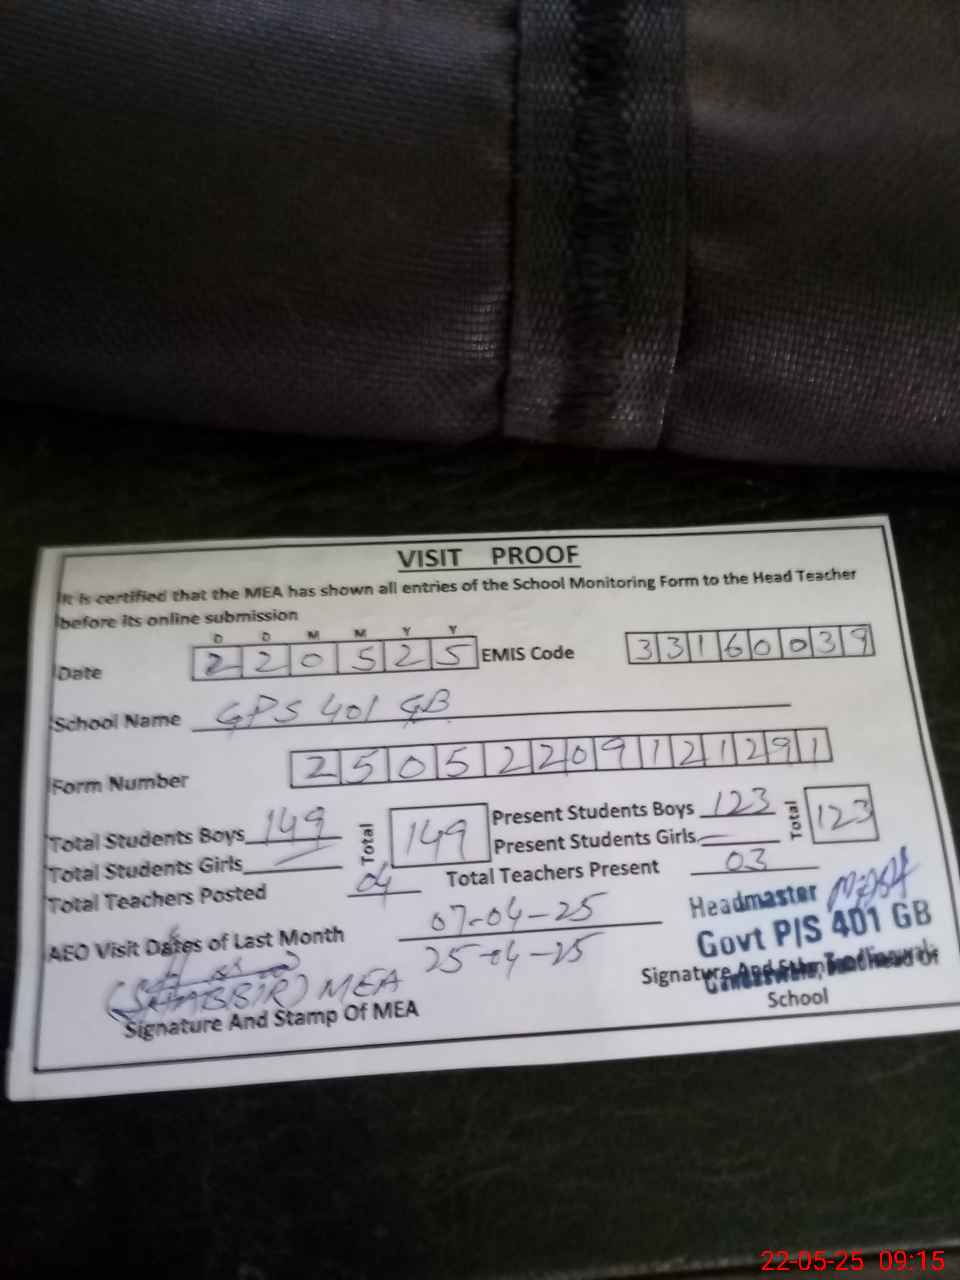 VISIT PROOF
It is certified that the MEA has shown all entries of the School Monitoring Form to the Head Teacher
before its online submission
D D M M Y Y
Date 2 2 0 5 2 5 EMIS Code 3 3 1 6 0 0 3 9
School Name GPS 401 GB
Form Number 2 5 0 5 2 2 0 9 1 2 1 2 9 1
Total Students Boys 149 Total 149 Present Students Boys 123 Total 123
Total Students Girls — Present Students Girls —
Total Teachers Posted 04 Total Teachers Present 03
AEO Visit Dates of Last Month 07-04-25
25-04-25
Headmaster
Govt P/S 401 GB
(SHABBIR) MEA
Signature And Stamp Of MEA
Signature And Head Of
School
22-05-25 09:15